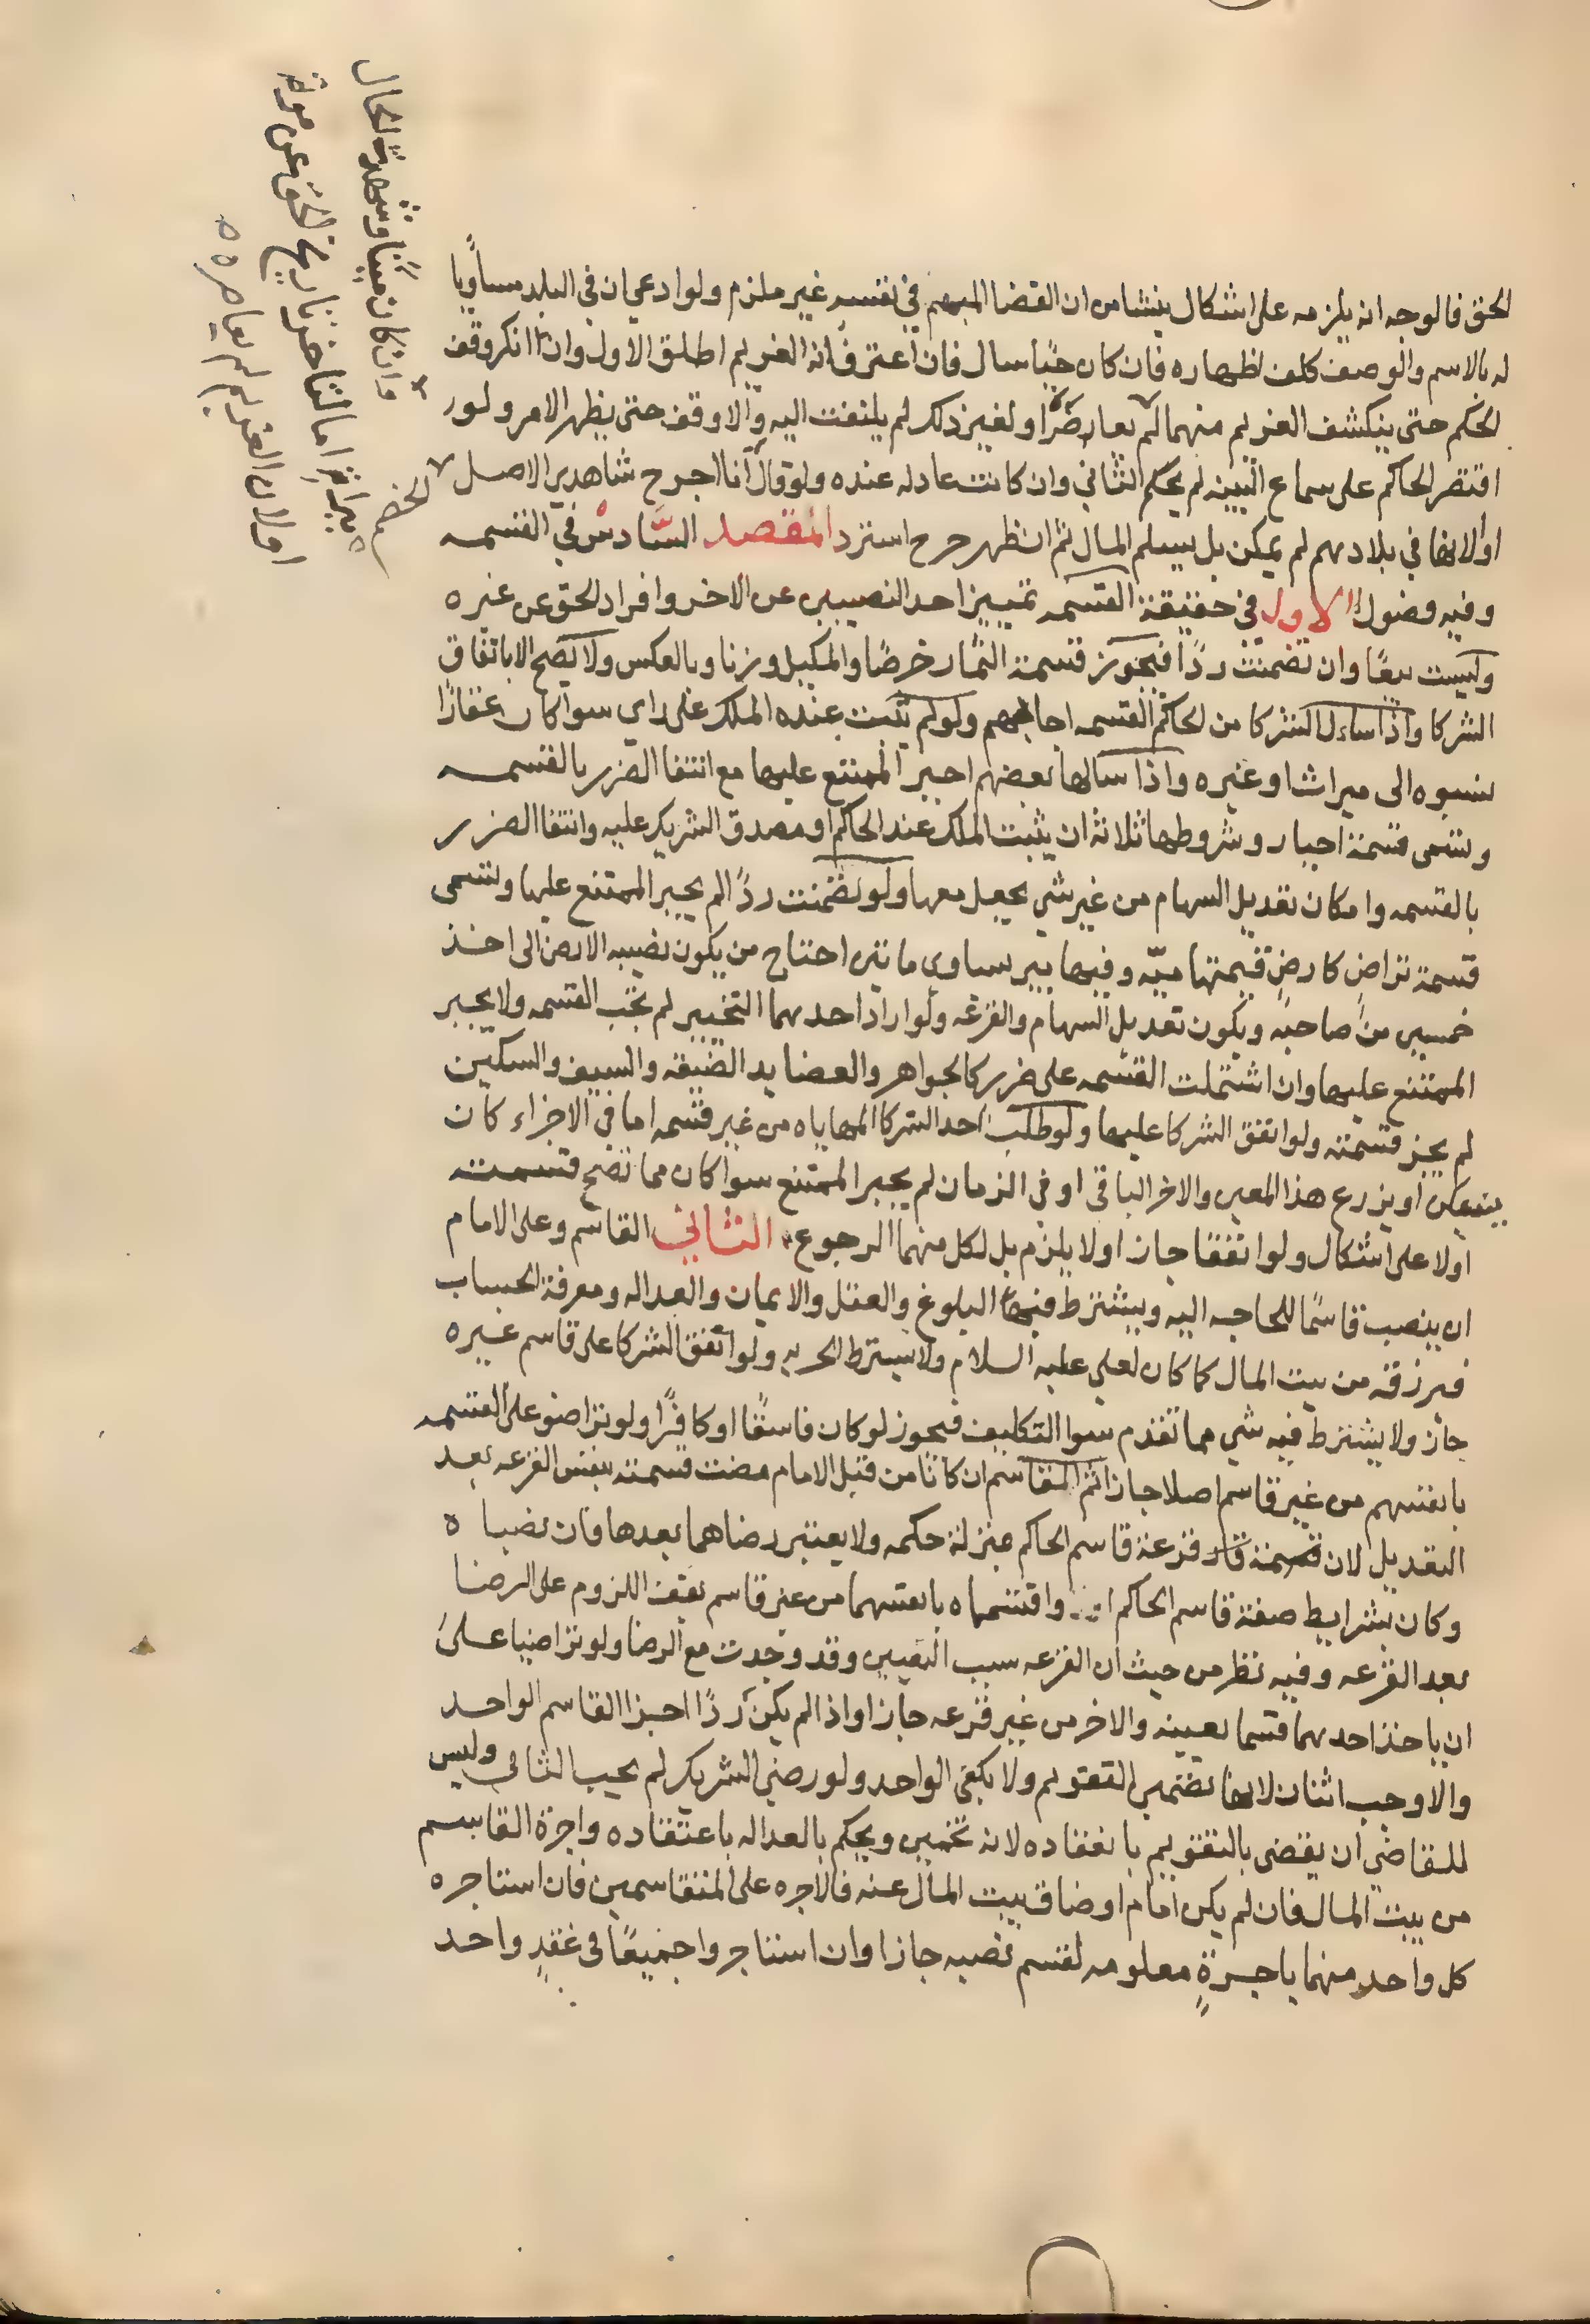 الحق فالوجه انه يلزمه على اشكال ينشا من ان القضا المبهم في نفسه غير ملزم ولو ادعى ان في البلد مساويا
له بالاسم والوصف كلف اظهاره فان كان حيا سال فان اعترف انه الغريم اطلق الاول وان انكر وقف
الحكم حتى ينكشف الغريم منهما لم يعاره او لغير ذلك لم يلتفت اليه والا وقف حتى يظهر الامر ولو
اقتصر الحاكم على سماع البينه لم يحكم الثاني وان كانت عادله عنده ولو قال انا اجرح شاهدي الاصل
او لانها في بلادهم لم يمكن بل يسلم المال ثم ان ظهر جرح استرد المقصد السادس في القسمه
وفيه فصول الاول في حقيقة القسمه تمييز احد النصيبين عن الاخر وافراد الحق عن غيره
وليست بيعا وان تضمنت ردا فيجوز قسمة الثمار خرصا والمكيل وزنا وبالعكس ولا يصح الا باتفاق
الشركا واذا سال الشركا من الحاكم القسمه اجابهم ولو لم يثبت عنده الملك على راي سوا كان عقارا
نسبوه الى ميراث او غيره واذا سالها بعضهم اجبر الممتنع عليها مع انتفا الضرر بالقسمه
وتسمى قسمة اجبار وشروطها ثلاثة ان يثبت الملك عند الحاكم او مصدق الشريك عليه وانتفا الضرر
بالقسمه وامكان تعديل السهام من غير شي يجعل معها ولو تضمنت ردا لم يجبر الممتنع عليها وتسمى
قسمة تراض كارض قيمتها ميه وفيها بير يساوي ماتين احتاج من يكون نصيبه الارض الى اخذ
خمسين من صاحبه ويكون تعديل السهام والقرعه ولو اراد احدهما التخيير لم تجب القسمه ولا يجبر
الممتنع عليها وان اشتملت القسمه على ضرر كالجواهر والعضايد الضيقه والسيف والسكين
لم يجز قسمته ولو اتفق الشركا عليها ولو طلب احد الشركا المهاياه من غير قسمه اما في الاجزاء كان
يسكن او يزرع هذا المعين والاخر الباقي او في الزمان لم يجبر الممتنع سوا كان مما تصح قسمته
اولا على اشكال ولو اتفقا جاز اولا يلزم بل لكل منهما الرجوع الثاني القاسم وعلى الامام
ان ينصب قاسما للحاجه اليه ويشترط فيها البلوغ والعقل والايمان والعداله ومعرفة الحساب
فيرزقه من بيت المال كما كان لعلي عليه السلام ولا يشترط الحريه ولو اتفق الشركا على قاسم غيره
جاز ولا يشترط فيه شي مما تقدم سوا التكليف فيجوز لو كان فاسقا او كافرا ولو تراضو على القسمه
بانفسهم من غير قاسم اصلا جاز ثم المتقاسم ان كانا من قبل الامام مضت قسمته بنفس القرعه بعد
التعديل لان قرعة قاسم الحاكم بمنزلة حكمه ولا يعتبر رضاهما بعدها وان نصباه
وكان بشرايط صفة قاسم الحاكم واقتسماه بانفسهما من غير قاسم يقف اللزوم على الرضا
بعد القرعه وفيه نظر من حيث ان القرعه سبب التعيين وقد وجدت مع الرضا ولو تراضيا على
ان ياخذ احدهما قسما بعينه والاخر من غير قرعه جاز واذا لم يكن ردا اجزا القاسم الواحد
والا وجب اثنان لانها تضمين التقويم ولا يكفي الواحد ولو رضي الشريك لم يجب الثاني وليس
للقاضي ان يقضي بالتقويم باعتقاده لانه تخمين ويحكم بالعداله باعتقاده واجرة القاسم
من بيت المال فان لم يكن امام او ضاق بيت المال عنه فالاجره على المتقاسمين فان استاجره
كل واحد منهما باجرة معلومه لقسم نصيبه جاز وان استاجروا جميعا في عقد واحد
وان كان ميتا وشهدت الحال
ببراءته اما لتاخر تاريخ الحق عن موته
او لان الغريم لم يعاصره